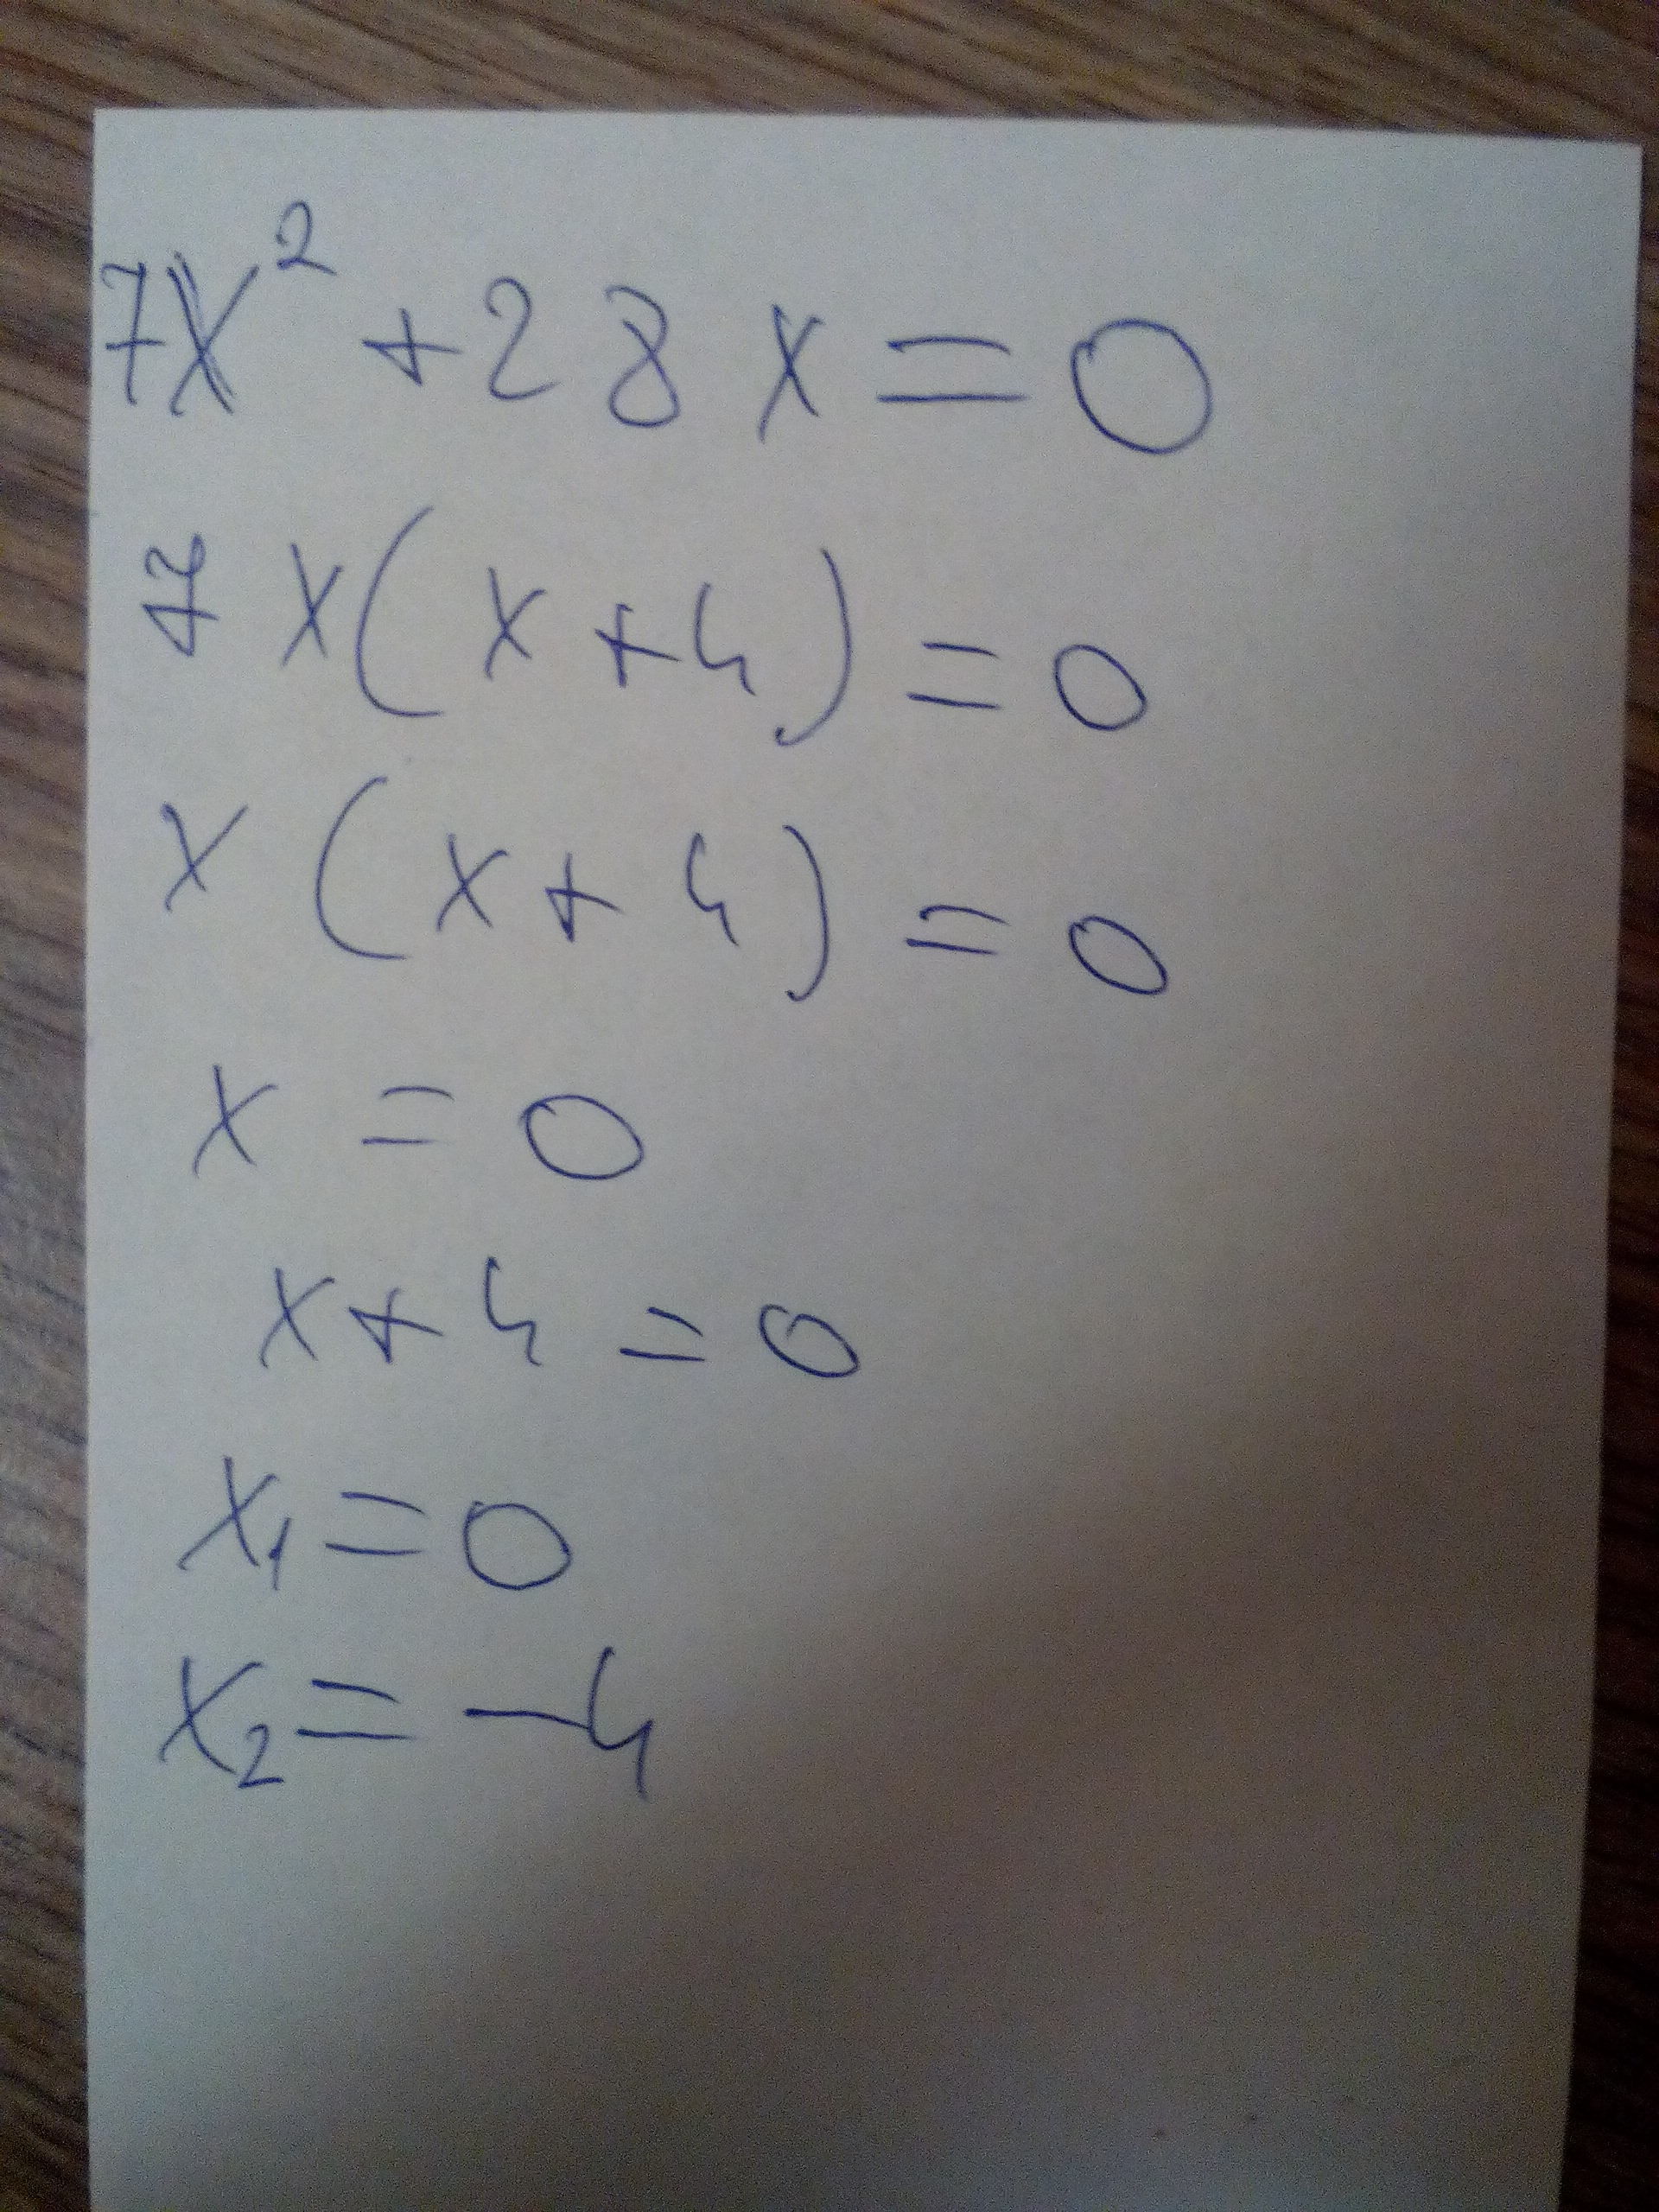 7x² + 28x = 0
7x(x + 4) = 0
x(x + 4) = 0
x = 0
x + 4 = 0
x₁ = 0
x₂ = -4